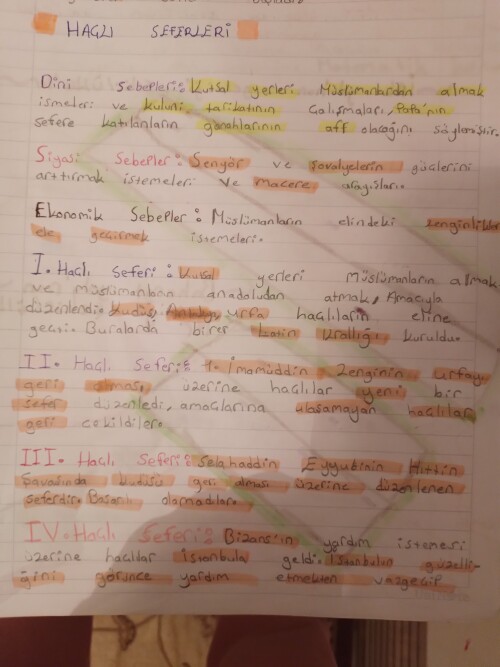 HAÇLI SEFERLERİ
Dini Sebepler: Kutsal yerleri Müslümanlardan almak
istemeleri ve kuluni tarikatının Çalışmaları, Papa'nın
sefere katılanların günahlarının aff olacağını söylemiştir.
Siyasi Sebepler: Senyör ve şovalyelerin güçlerini
arttırmak istemeleri ve macera arayışları.
Ekonomik Sebepler: Müslümanların elindeki zenginlikler
ele geçirmek istemeleri.
I. Haçlı Seferi: Kutsal yerleri Müslümanların almak
ve müslümanların anadoludan atmak, Amacıyla
düzenlendi. Kudüs, Antakya, urfa haçlıların eline
geçti. Buralarda birer Latin Krallığı kuruldu.
II. Haçlı Seferi: İmamüddin Zenginin urfayı
geri alması, üzerine haçlılar yeni bir
sefer düzenledi, amaçlarına ulaşamayan haçlılar
geri çekildiler.
III. Haçlı Seferi: Selahaddin Eyyubinin Hıttin
Savaşında kudüsü geri alması üzerine düzenlenen
seferdir. Başarılı olamadılar.
IV. Haçlı Seferi: Bizans'ın yardım istemesi
üzerine haçlılar İstanbula geldi. İstanbulun güzelli-
ğini görünce yardım etmekten vazgeçip